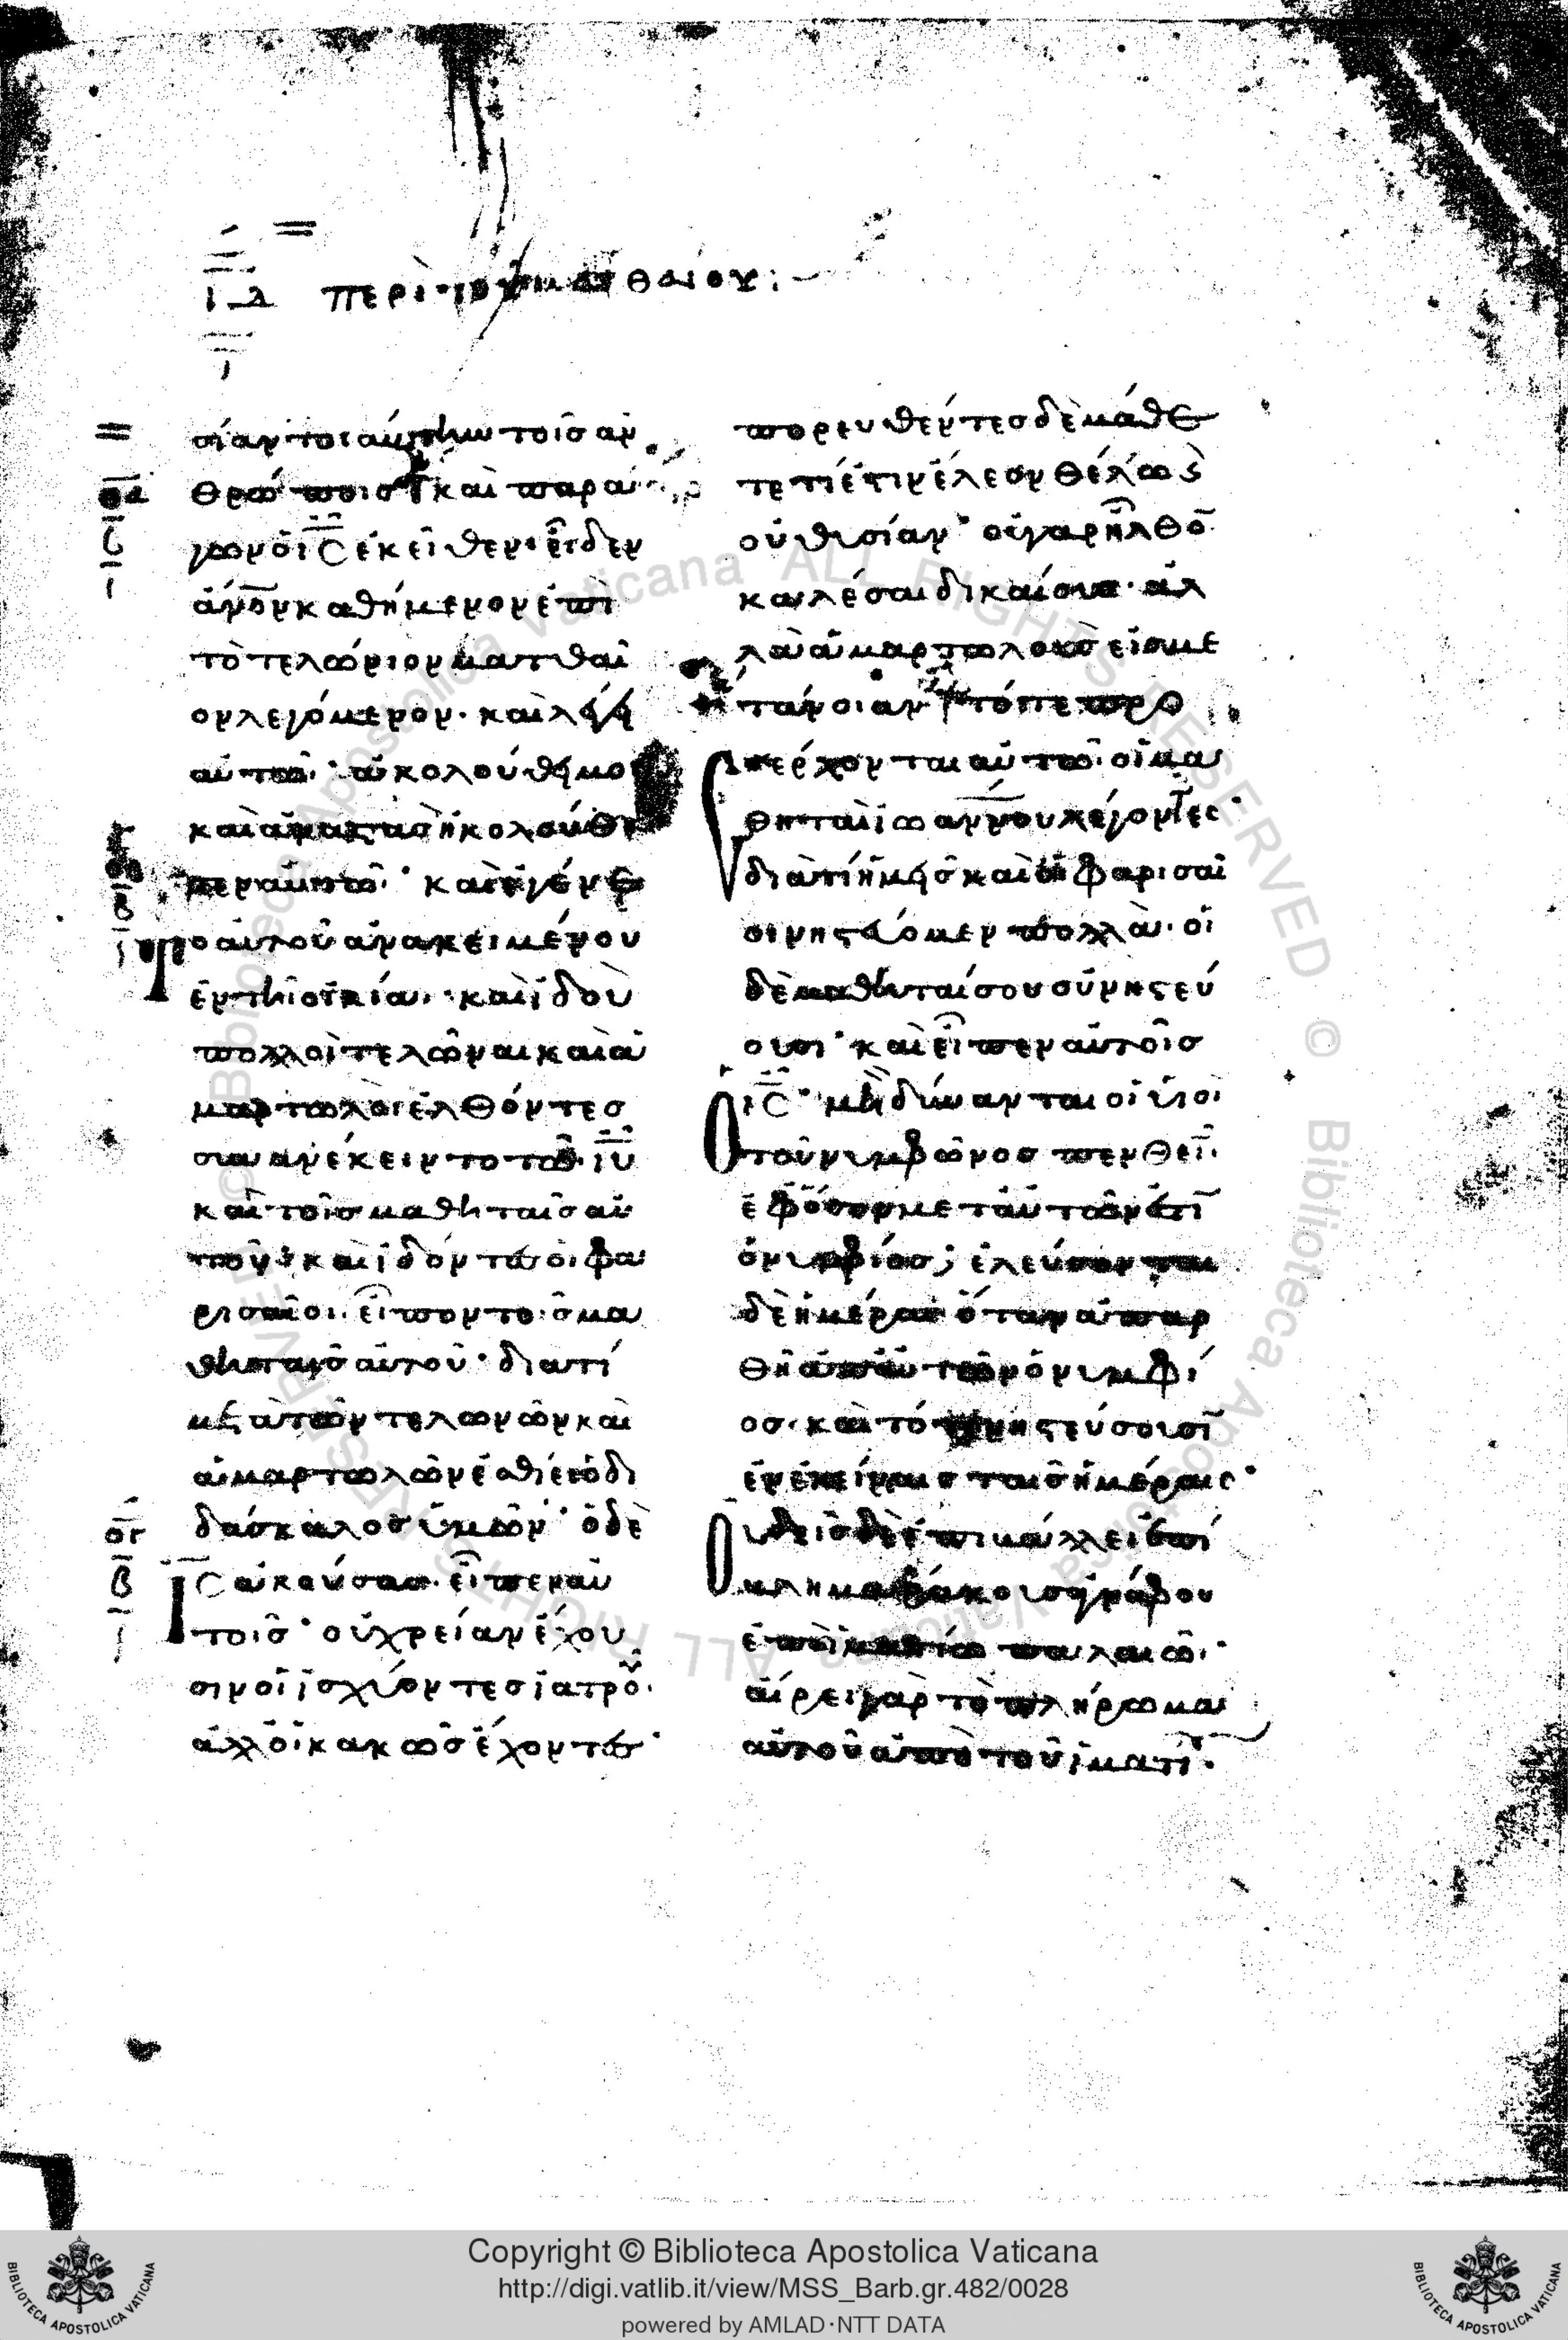 ιδ περὶ τοῦ ματθαίου
σίαν τοιαύτην τοῖσ ἀν
θρώποισ καὶ παρά
γων ὁ ις ἐκεῖθεν· εἶδεν
ἀνον καθήμενον ἐπὶ
τὸ τελώνιον ματθαῖ
ον λεγόμενον· καὶ λέγει
αὐτῶ· ἀκολούθει μοι
καὶ ἀναστὰσ ἠκολούθη
σεν αὐτῶ· καὶ ἐγένε
το αὐτοῦ ἀνακειμένου
ἐν τῆ οἰκία· καὶ ἰδοὺ
πολλοὶ τελῶναι καὶ ἁ
μαρτωλοὶ ἐλθόντεσ
συνανέκειντο τῶ ιυ
καὶ τοῖσ μαθηταῖσ αὐ
τοῦ· καὶ ἰδόντεσ οἱ φα
ρισαῖοι· εἶπον τοῖσ μα
θηταῖσ αὐτοῦ· διατί
μετὰ τῶν τελωνῶν καὶ
ἁμαρτωλῶν ἐσθίει ὁ δι
δάσκαλοσ ὑμῶν· ὁ δὲ
ις ἀκούσασ· εἶπεν αὐ
τοῖσ· οὐ χρείαν ἔχου
σιν οἱ ἰσχύοντεσ ἰατροῦ·
ἀλλ' οἱ κακῶσ ἔχοντεσ·
πορευθέντεσ δὲ μάθε
τε τί ἐστιν ἔλεον θέλω ϗ
οὐ θυσίαν· οὐ γαρ ἦλθον
καλέσαι δικαίουσ· ἀλ
λὰ ἁμαρτωλοὺσ εἰσ με
τάνοιαν τότε προ
σέρχονται αὐτῶ οἱ μα
θηταὶ ἰωαννου λέγοντες·
διατί ἡμεῖσ καὶ οἱ φαρισαῖ
οι νηστεύομεν πολλὰ· οἱ
δὲ μαθηταί σου οὐ νηστεύ
ουσι· καὶ εἶπεν αὐτοῖσ
ὁ ις· μὴ δύνανται οἱ υἱοὶ
τοῦ νυμφῶνοσ πενθεῖν·
ἐφόσον με τ' αὐτῶν ἐστὶν
ὁ νυμφίοσ; ἐλεύσονται
δὲ ἡμέραι ὅταν ἀπαρ
θῆ ἀπ' αὐτῶν ὁ νυμφί
οσ· καὶ τότε νηστεύσουσιν
ἐν ἐκείναισ ταῖσ ἡμέραις·
οὐδεὶσ δὲ ἐπιβάλλει ἐπί
βλημα ῥάκουσ ἀγνάφου
ἐπὶ ἱματίω παλαιῶ·
αἴρει γὰρ τὸ πλήρωμα
αὐτοῦ ἀπὸ τοῦ ἱματίου·
ογ
β
Copyright © Biblioteca Apostolica Vaticana
http://digi.vatlib.it/view/MSS_Barb.gr.482/0028
powered by AMLAD·NTT DATA